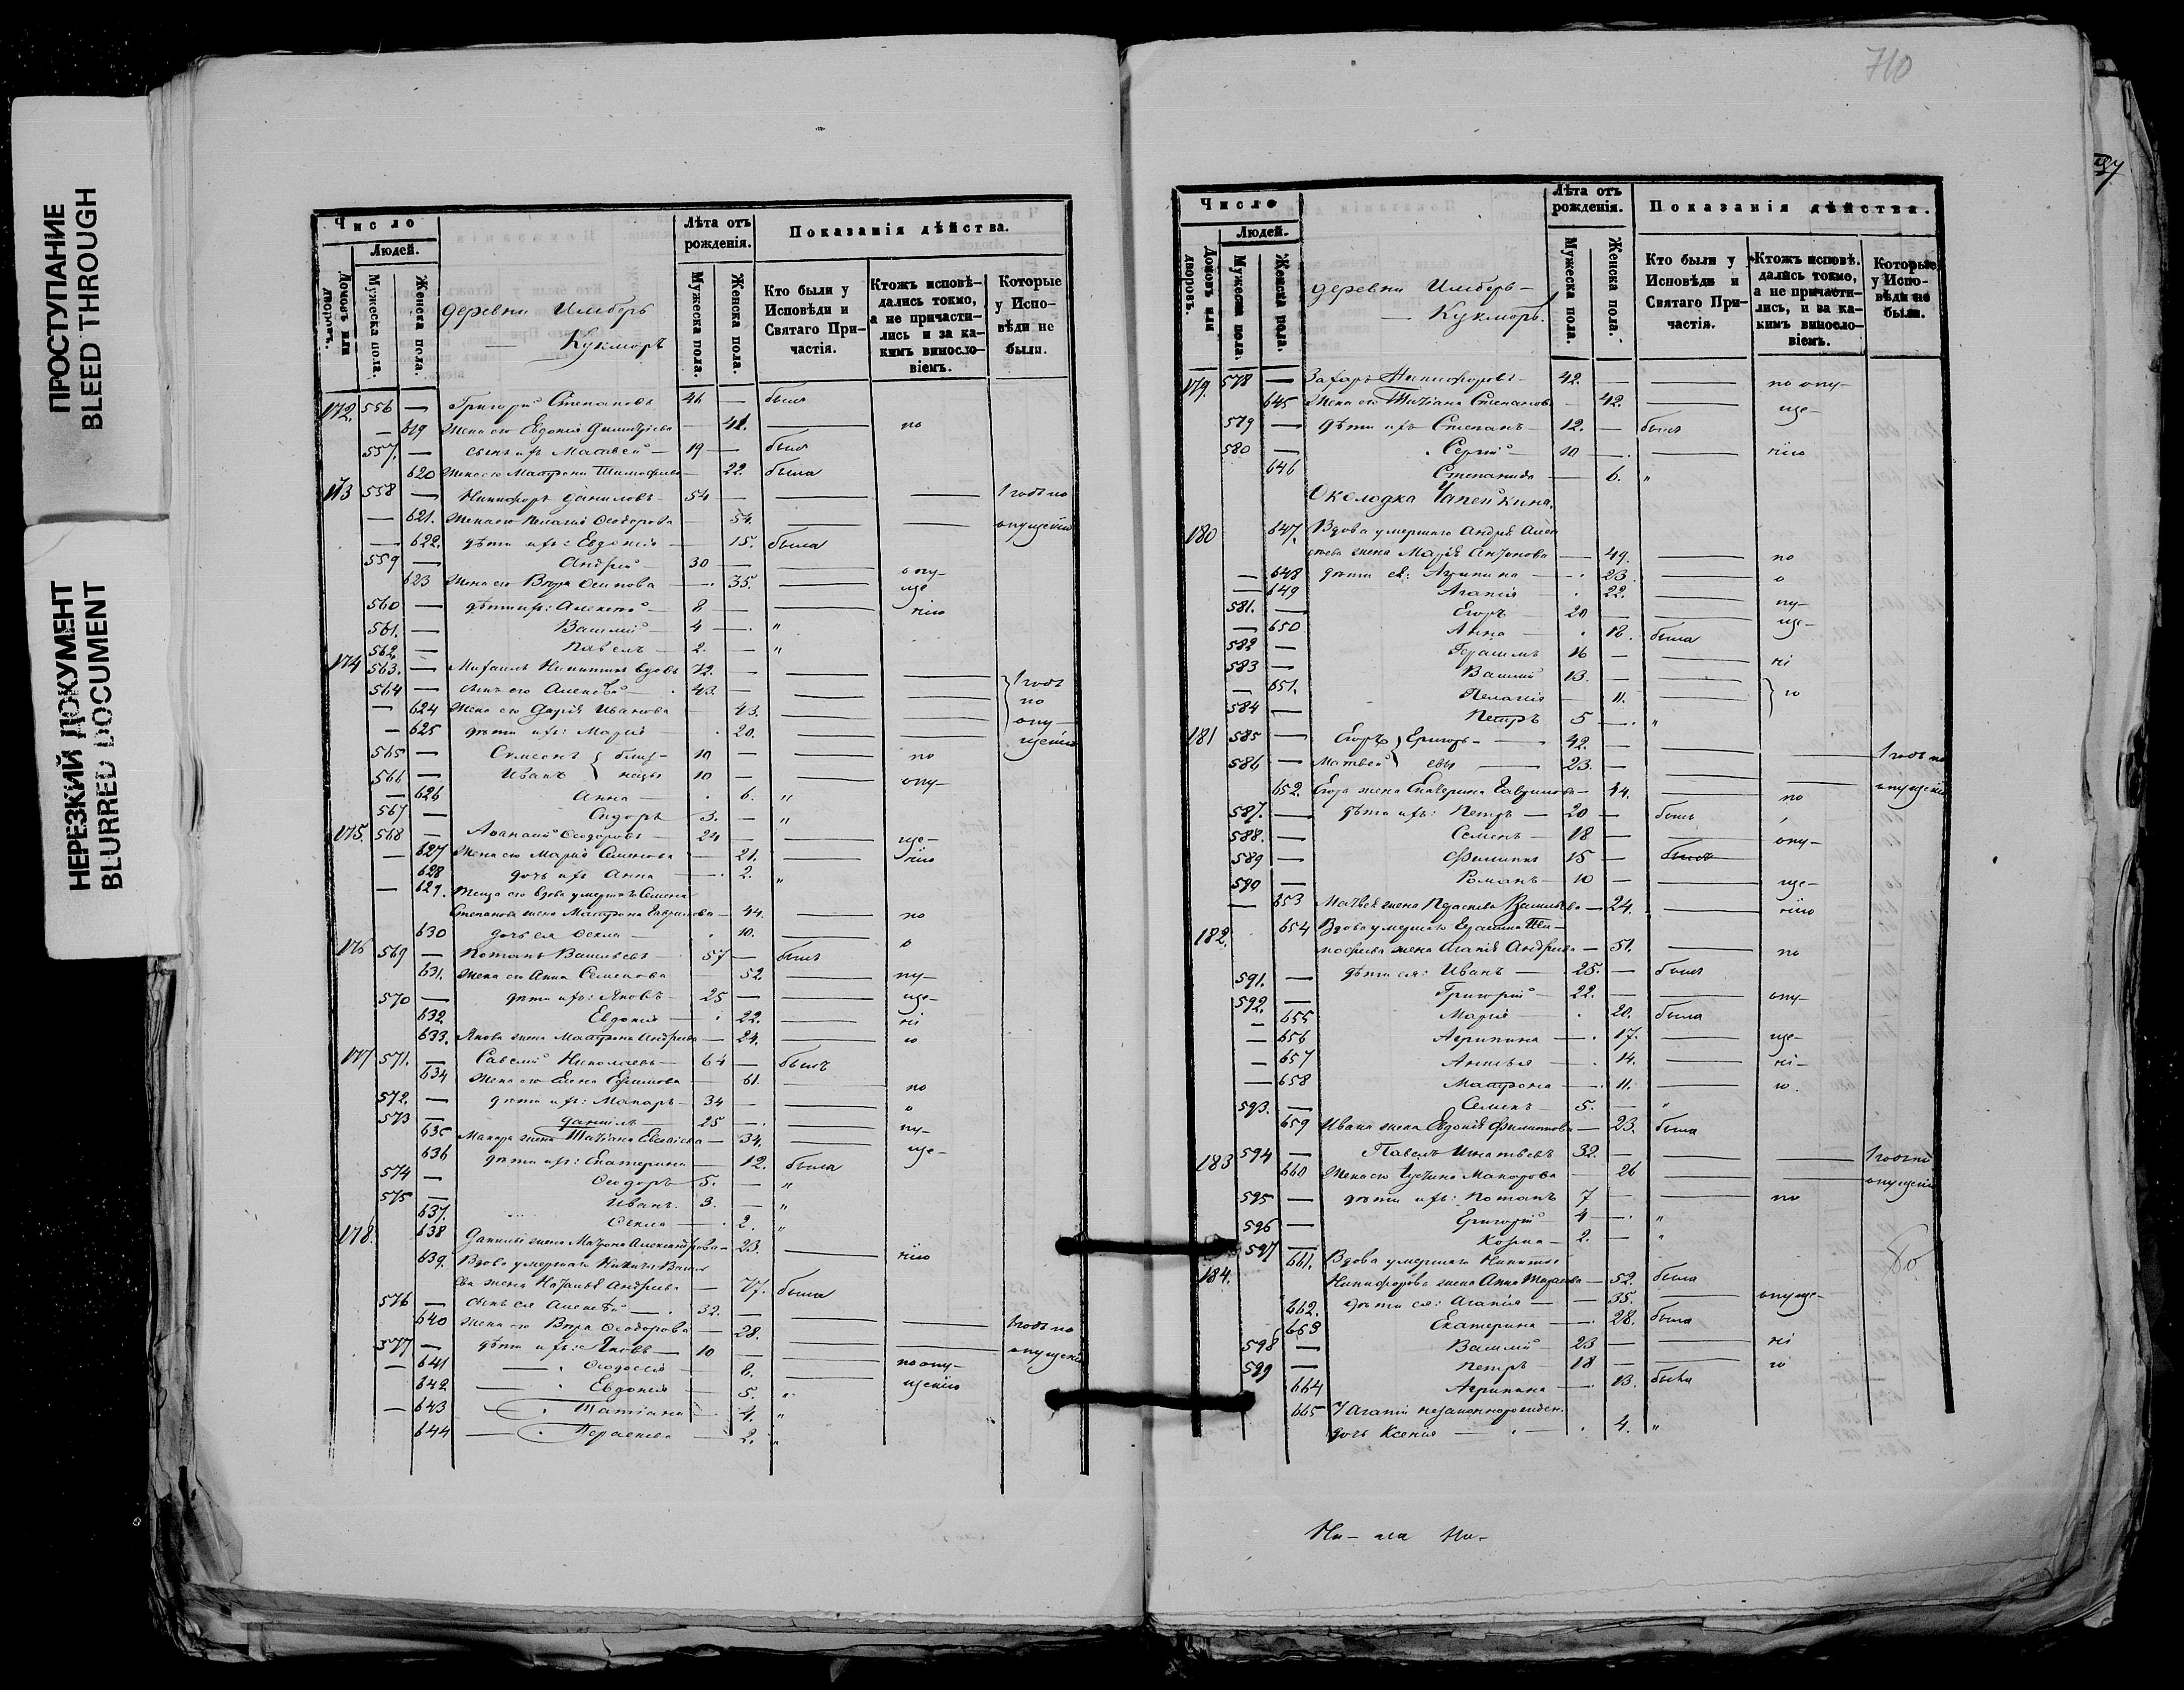 ПРОСТУПАНИЕ
BLEED THROUGH
НЕРЕЗКИЙ ДОКУМЕНТ
BLURRED DOCUMENT
Число
Людей.
Домовъ или дворовъ.
Мужеска пола.
Женска пола.
деревни Имберь
— Кукморъ
Лѣта отъ рожденія.
Мужеска пола.
Женска пола.
Показанія дѣйства.
Кто были у Исповѣди и Святаго Причастія.
Ктожъ исповѣдались токмо, а не причастились и за какимъ винословіемъ.
Которые у Исповѣди не были.
172. 556 — Григорій Степановъ 46 — былъ
— 619 Жена его Евдокія Димитріева — 41. — по
557. — сынъ ихъ Матвей 19 — былъ
620 Жена его Матрона Тимофеева — 22. была
173 558 — Никифоръ Даниловъ 54 — — — 1 годъ по
— 621. Жена его Пелагія Ѳеодорова — 54. — — опущенію
— 622. дѣти ихъ: Евдокія — 15. была
559 — Андрей 30 — —
623 Жена его Вѣра Осипова — 35. — опу-
560 — дѣти ихъ: Алексей 8 — — ще-
561. — Василій 4 — " нію
562. — Павелъ 2. — "
174 563. — Михаилъ Никитинъ вдовъ 72. — — — 1 годъ
564 — сынъ его Алексей 43. — — — по
— 624 Жена его Дарія Иванова — 43. — — опу-
— 625 дѣти ихъ: Марія — 20. — — щенію
565 — Симеонъ } близ- 10 — — по
566 — Иванъ } нецы 10 — — опу-
— 626 Анна — 6. "
567 — Сидоръ 3. — "
175. 568 — Аѳанасій Ѳеодоровъ 24 — — ще-
— 627 Жена его Марія Семенова — 21. — нію
628 дочь ихъ Анна — 2. "
— 629. Теща его вдова умершаго Семена
Степанова жена Матрона Гаврилова — 44. — по
630 дочь ея Ѳекла — 10. —
176 569 — Потапъ Васильевъ 57 — былъ о
631. Жена его Анна Семенова — 52. — пу-
570 — дѣти ихъ: Яковъ 25 — — ще-
632. Евдокія — 22. — ні
633. Якова жена Матрона Андреева — 24. — ю
177 571. — Савелій Николаевъ 64 — былъ
634 Жена его Елена Ефимова — 61. — по
572. — дѣти ихъ: Макаръ 34 — — о
573 — Даніилъ 25 — — пу-
635 Макара жена Татіана Евсевіева — 34. — ще-
636 дѣти ихъ: Екатерина — 12. была
574 — Ѳеодоръ 5. — "
575 — Иванъ 3. — "
637. Ѳекла — 2. "
178. 638 Даниила жена Матрона Александрова — 23. — нію
639. Вдова умершаго Никиты Василь
ева жена Наталья Андреева — 77. была
576 — сынъ ея Алексей 32. — —
640 Жена его Вѣра Ѳеодорова — 28. — — 1 годъ по
577 — дѣти ихъ: Яковъ 10 — — — опущенію
— 641 Ѳеодосія — 8. — по опу-
642 Евдокія — 5. " щенію
— 643 Татіана — 4. "
644 Параскева — 2. "
710
Число
Людей.
Домовъ или дворовъ.
Мужеска пола.
Женска пола.
деревни Имберь —
— Кукморъ.
Лѣта отъ рожденія.
Мужеска пола.
Женска пола.
Показанія дѣйства.
Кто были у Исповѣди и Святаго Причастія.
Ктожъ исповѣдались токмо, а не причастились, и за какимъ винословіемъ.
Которые у Исповѣди не были.
179. 578 — Захаръ Никифоровъ 42. — — по опу-
645 Жена его Татіана Степанова — 42. — ще-
579 — дѣти ихъ Степанъ 12. — былъ
580 — Сергій 10 — — нію
646 Степанида — 6. "
Околодка Чапейкина.
180 647. Вдова умершаго Андрея Алек
сеева жена Марія Антонова — 49. — по
— 648 дѣти ея: Агрипина — 23. — о
— 649 Агапія — 22. —
581. — Егоръ 20 — — пу-
— 650 Анна — 18. была ще-
582 — Герасимъ 16 — —
583 — Василій 13. — — ні
— 651. Пелагія — 11. — ю
584 — Петръ 5 — "
181 585 — Егоръ } Григорь- 42. — — — 1 годъ по
586 — Матвей } евы 23. — — — опущенію
652. Егора жена Екатерина Гаврилова — 44. — по
587. — дѣти ихъ: Петръ 20 — былъ
588. — Семенъ 18 — — опу-
589 — Филиппъ 15 — былъ
590 — Романъ 10 — — ще-
— 653 Матвея жена Параскева Васильева — 24. — нію
182. 654 Вдова умершаго Герасима Ти-
мофеева жена Агапія Андреева — 51. — по
591. — дѣти ея: Иванъ 25. — былъ
592. — Григорій 22. — — опу-
— 655 Марія — 20. была
— 656 Агрипина — 17. — ще-
— 657 Анисья — 14. — ні-
— 658 Матрона — 11. — ю.
593. — Семенъ 5. — "
659 Ивана жена Евдокія Филиппова — 23. была
183 594 — Павелъ Игнатьевъ 32. — — — 1 годъ по
660 Жена его Устина Макарова — 26 — — опущенію
595 — дѣти ихъ: Потапъ 7 — — по
596 — Григорій 4 — "
597 — Козма 2. — "
184. 661. Вдова умершаго Никиты
Никифорова жена Анна Тарасова — 52. была
662. дѣти ея: Агапія — 35. — опуще-
663 Екатерина — 28. была
598 — Василій 23 — — ні
599 — Петръ 18 — — ю
664 Агрипина — 13. была
665 У Агапіи незаконнорожден.
дочь Ксенія — 4. "